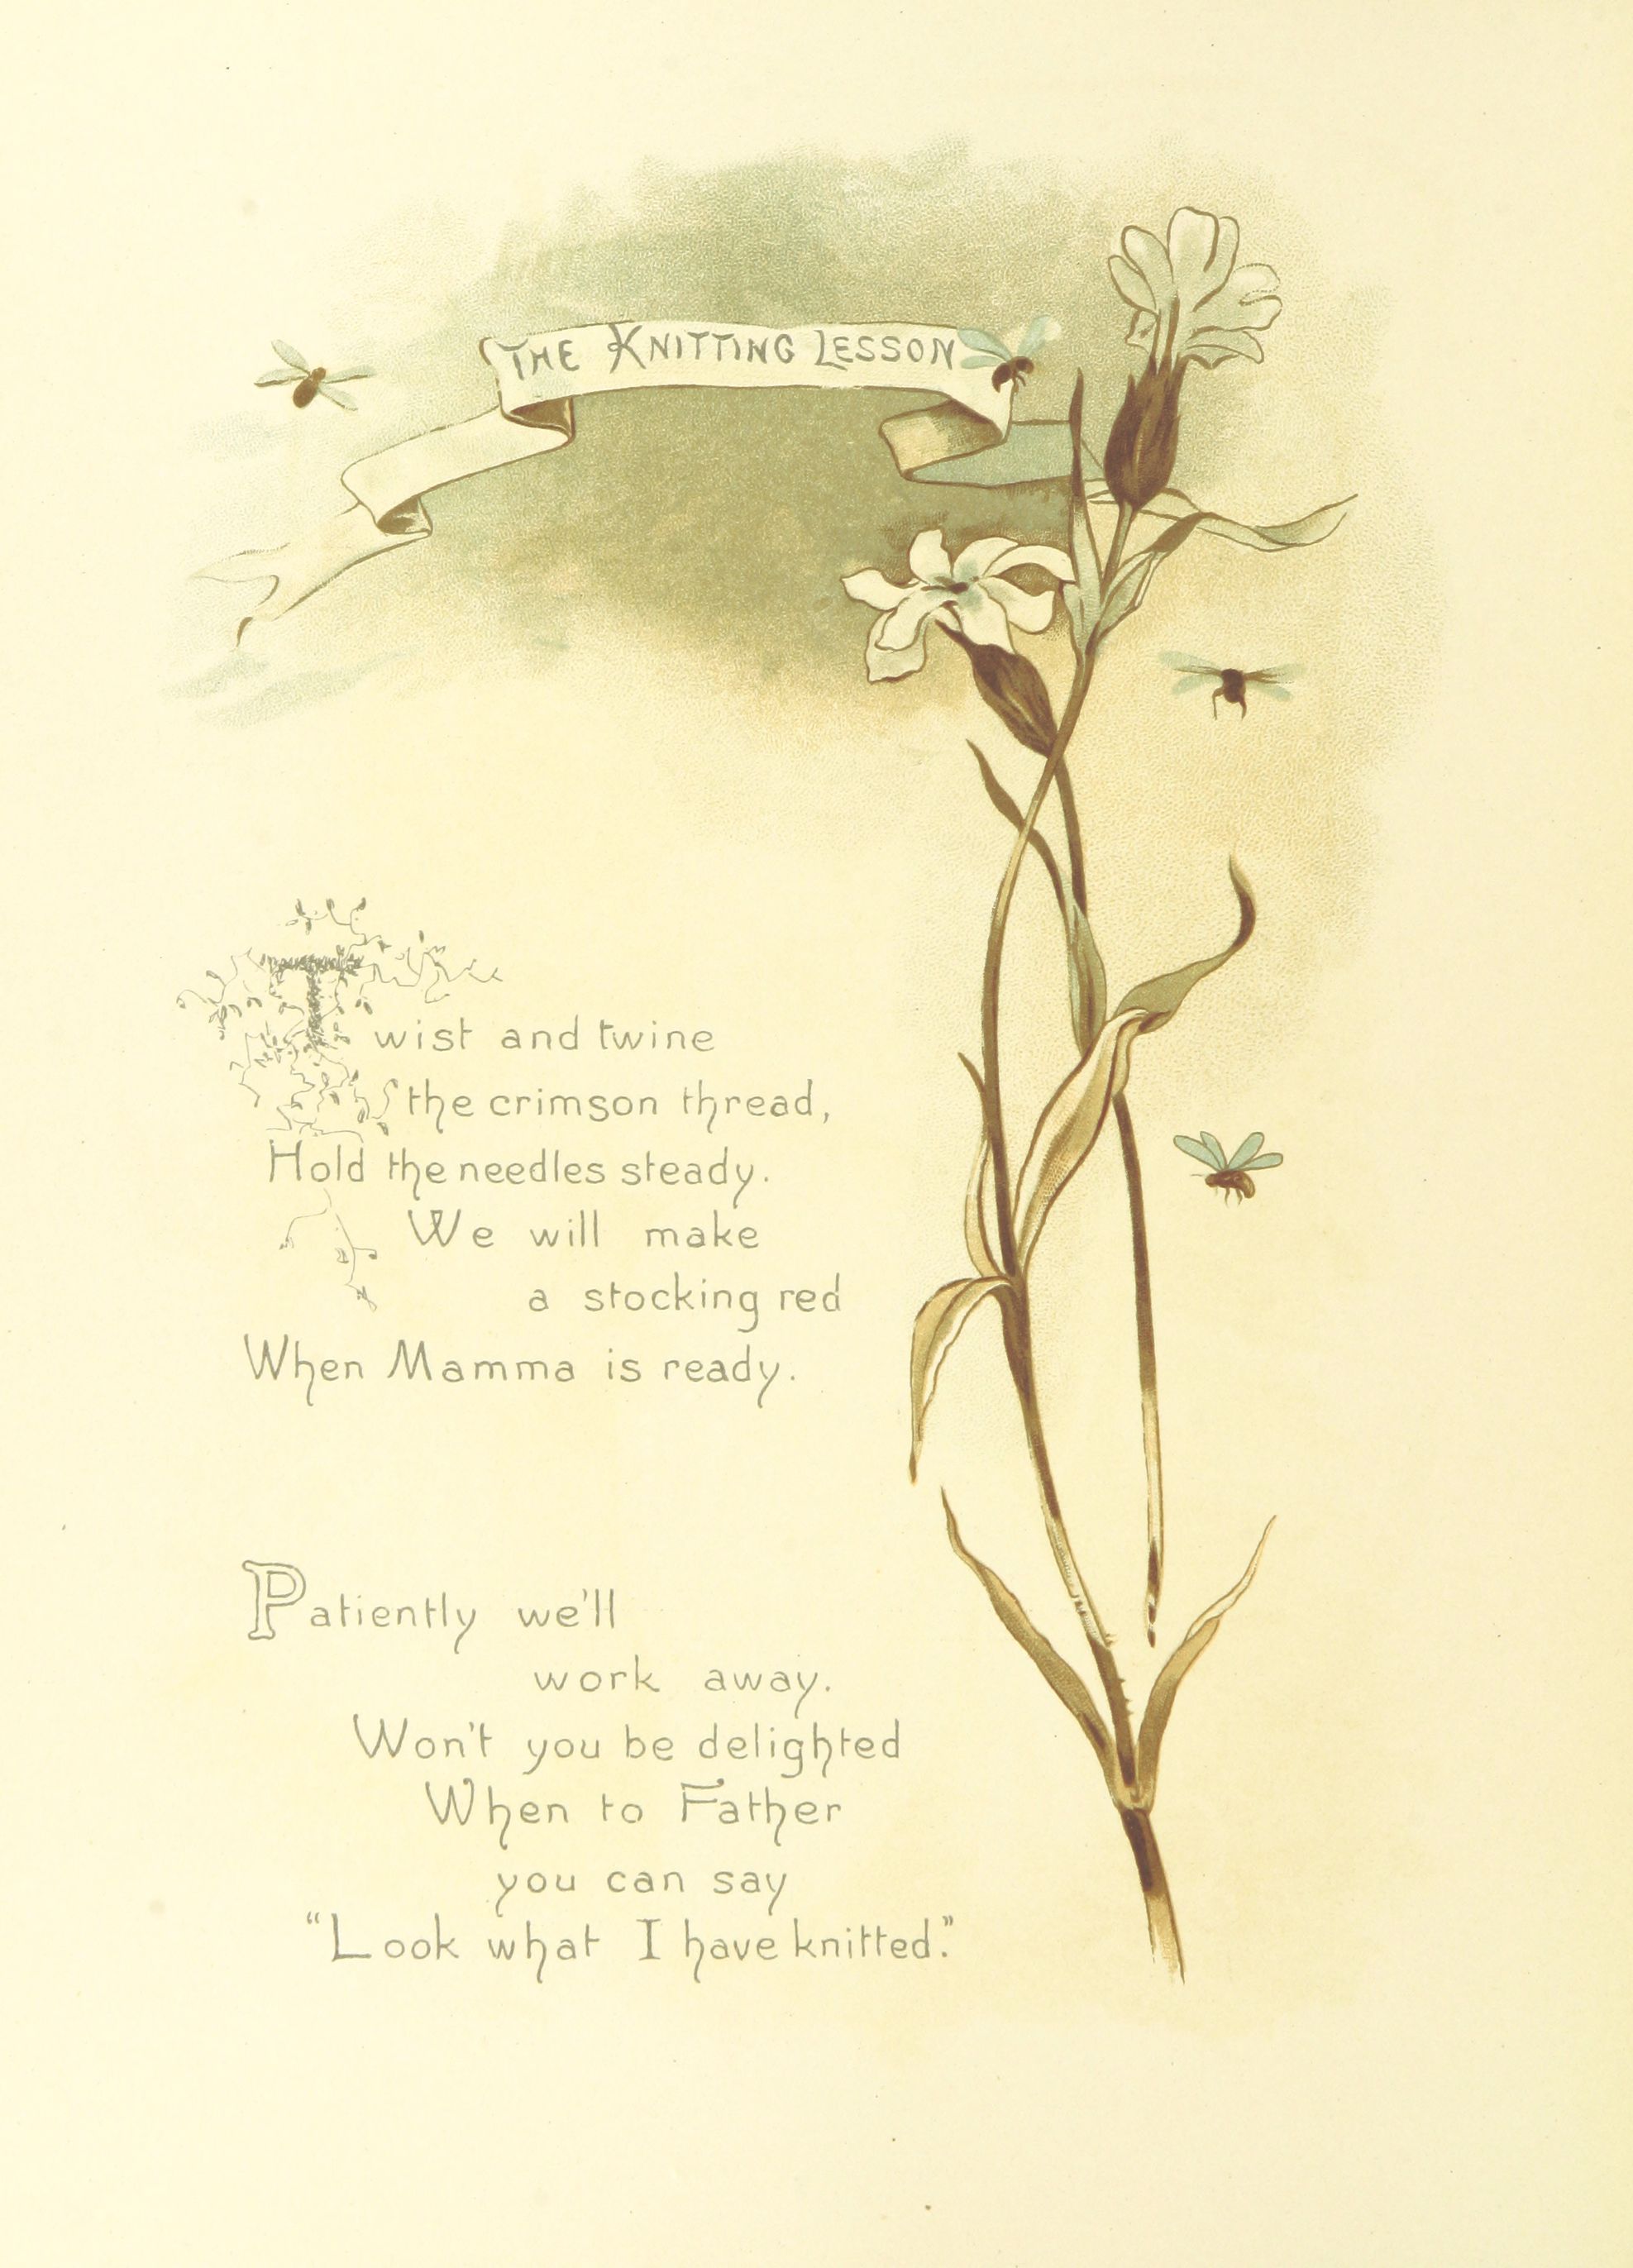 THE KNITTING LESSON
Twist and twine
the crimson thread,
Hold the needles steady.
We will make
a stocking red
When Mamma is ready.
Patiently we'll
work away.
Won't you be delighted
When to Father
you can say
“Look what I have knitted.”